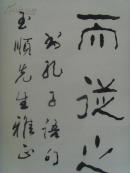 而從之
書孔子語句
玉順先生雅正